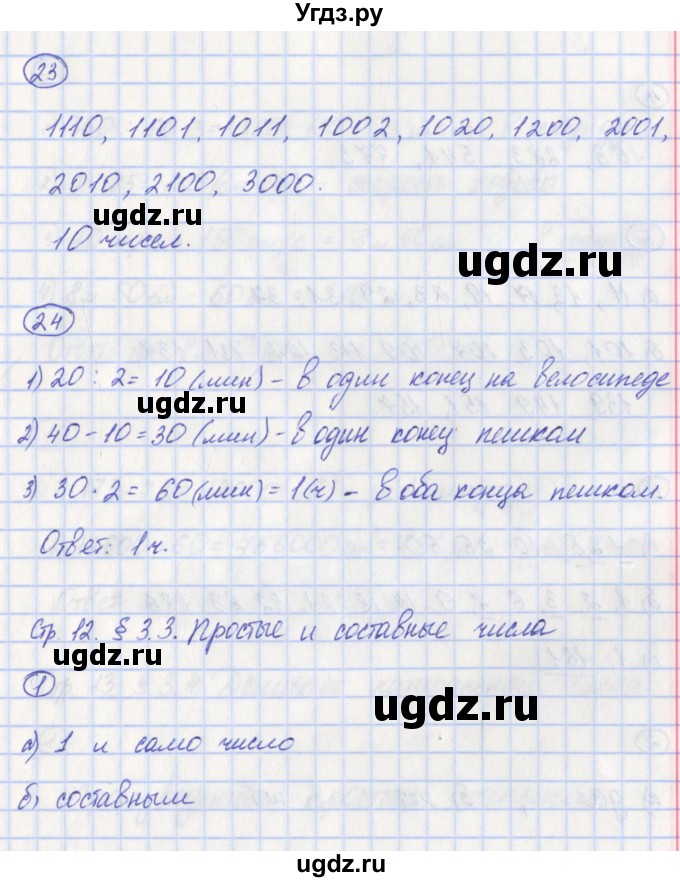 Угдз.ру
23
1110, 1101, 1011, 1002, 1020, 1200, 2001,
2010, 2100, 3000.
ugdz.ru
10 чисел.
ugdz.ru
24
1) 20 : 2 = 10 (мин) - в один конец на велосипеде
ugdz.ru
2) 40 - 10 = 30 (мин) - в один конец пешком
3) 30 · 2 = 60 (мин) = 1 (ч) - в оба конца пешком.
Ответ: 1 ч.
Стр. 12. § 3.3. Простые и составные числа
ugdz.ru
1
ugdz.ru
а) 1 и само число
б) составным
ugdz.ru